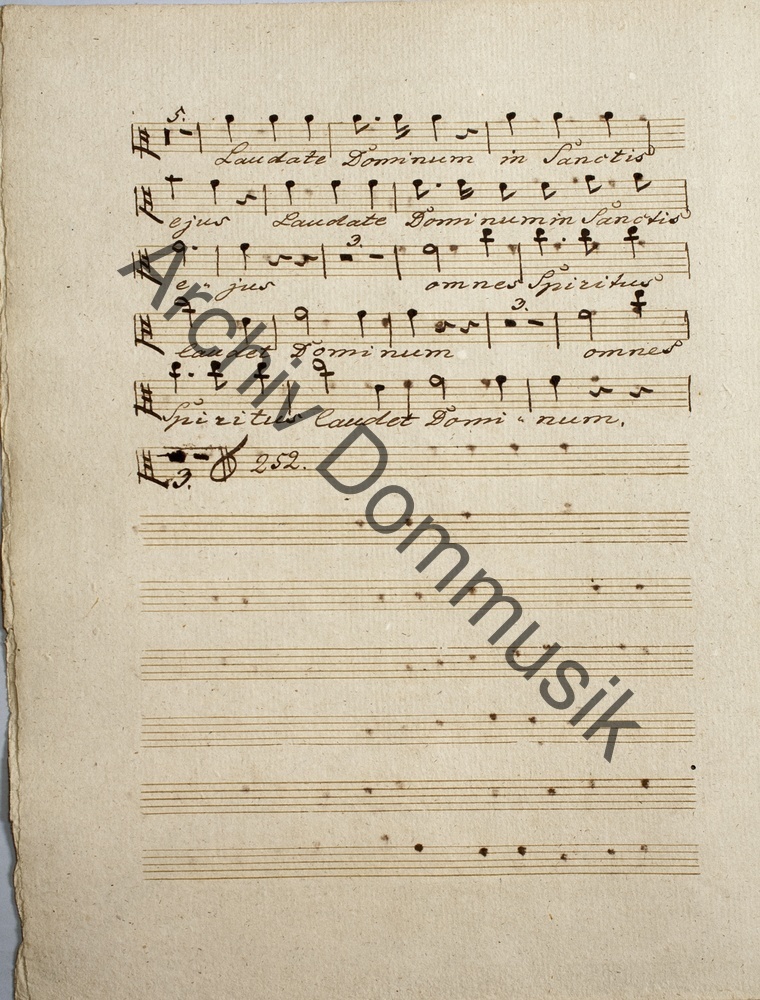 5.
Laudate Dominum in Sanctis
ejus Laudate Dominum in Sanctis
3.
e - jus omnes Spiritus
3.
laudet Dominum omnes
Spiritus laudet Domi - num.
3. 252.
Archiv Dommusik